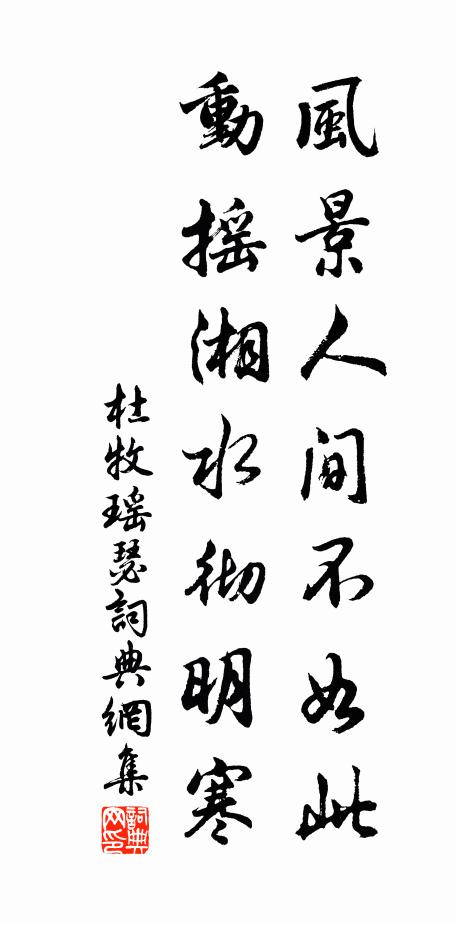 風景人间不如此
動摇湘水彻明寒
杜牧瑶瑟詞典網集
詞典网印